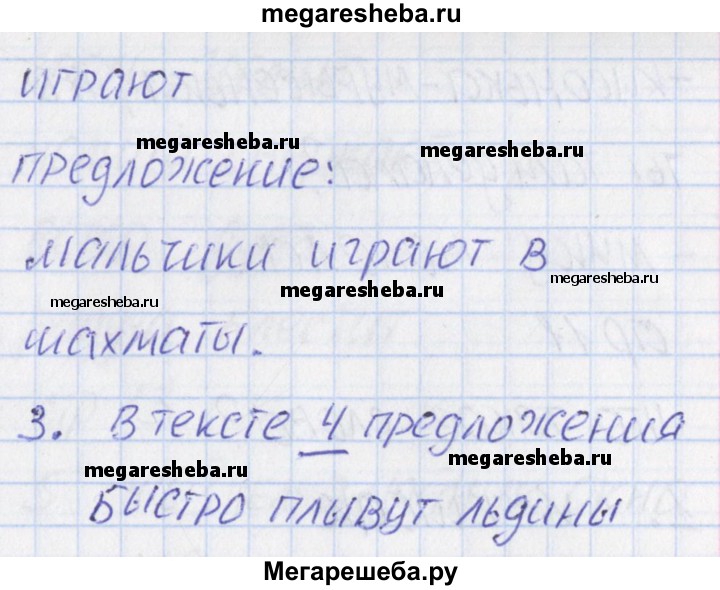 megaresheba.ru
играют
megaresheba.ru
megaresheba.ru
предложение:
мальчики играют в
megaresheba.ru
megaresheba.ru
megaresheba.ru
шахматы.
3. В тексте 4 предложения
megaresheba.ru
megaresheba.ru
Быстро плывут льдины
Мегарешеба.ру